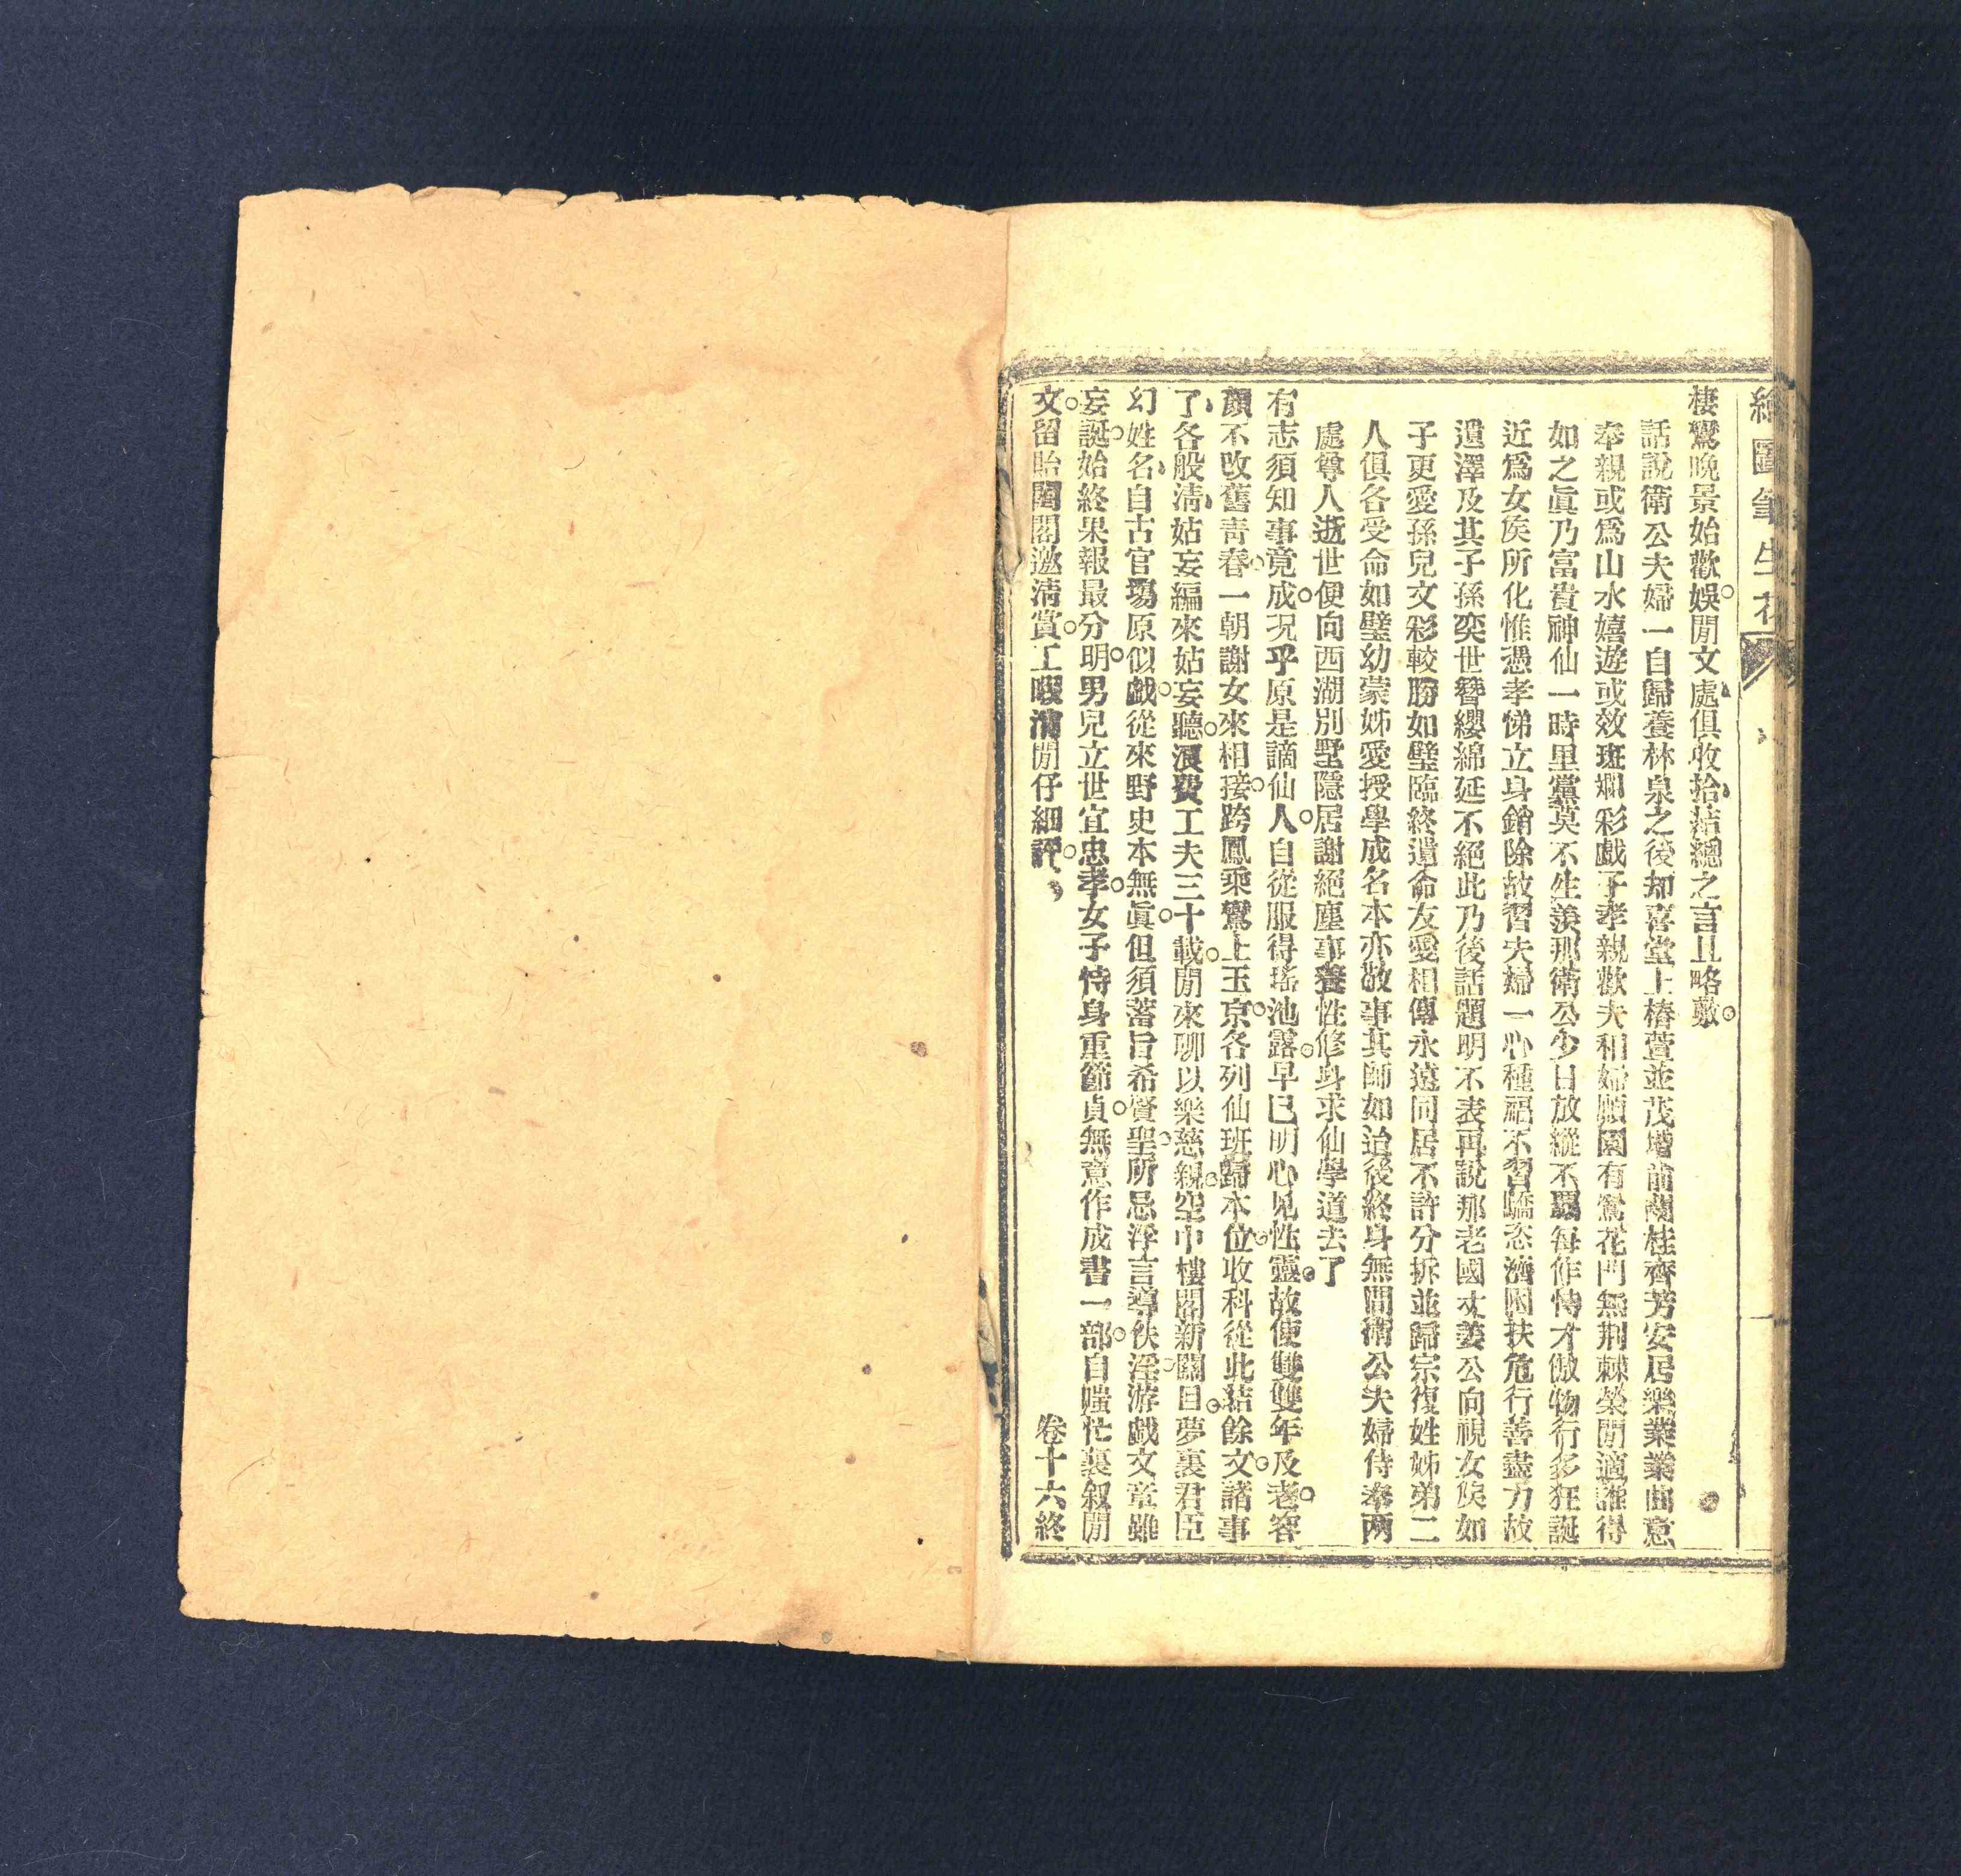 繪圖筆生花
棲鸞晚景始歡娛。閒文處、俱收拾、結總之言且略敷。
話說衛公夫婦一自歸養林泉之後却喜堂上椿萱並茂堦前蘭桂齊芳安居樂業業曲意
奉親或爲山水嬉遊或效斑斕彩戲子孝親歡夫和婦順園有鶯花門無荆棘榮閒適誰得
如之眞乃富貴神仙一時里黨莫不生羨那衛公少日放縱不羈每作恃才傲物行多狂誕
近爲女矦所化惟憑孝悌立身銷除故習夫婦一心種福不習驕恣濟困扶危行善盡力故
遺澤及其子孫奕世簪纓綿延不絕此乃後話題明不表再說那老國丈姜公向視女矦如
子更愛孫兒文彩較勝如璧臨終遺命友愛相傳永遠同居不許分拆並歸宗復姓姊弟二
人俱各受命如璧幼蒙姊愛授學成名本亦敬事其師如治後終身無間衛公夫婦侍奉兩
處尊人逝世便向西湖別墅隱居謝絕塵事養性修身求仙學道去了
有志須知事竟成。况乎原是謫仙人。自從服得瑤池露。早已明心見性靈。故使雙雙年及老。容
顏不改舊青春。一朝謝女來相接。跨鳳乘鸞上玉京。各列仙班歸本位。收科從此結餘文。諸事
了、各般淸、姑妄編來姑妄聽。浪費工夫三十載。閒來聊以樂慈親。空中樓閣新關目。夢裏君臣
幻姓名、自古官塲原似戲。從來野史本無眞。但須蓄旨希賢聖。所忌浮言導佚淫。游戲文章雖
妄誕。始終果報最分明。男兒立世宜忠孝。女子恃身重節貞。無意作成書一部。自嗤忙裏叙閒
文。留貽閨閣邀淸賞。工暇演閒仔細評。、
卷十六終